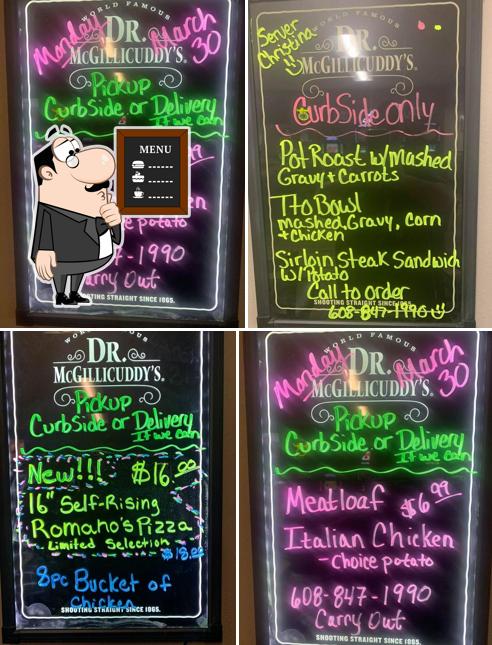 WORLD FAMOUS
Monday March
DR.
30
McGILLICUDDY'S®
Pickup
Curbside or Delivery
If we can
MENU
99
en
e potato
7-1990
arry Out
OTING STRAIGHT SINCE 1865.
Server
Christina
WORLD FAMOUS
DR.
McGILLICUDDY'S®
Curbside only
Pot Roast w/Mashed
Gravy + Carrots
Tto Bowl
Mashed, Gravy, Corn
+ Chicken
Sirloin Steak Sandwich
w/ Potato
Call to order
SHOOTING STRAIGHT SINCE 1865.
608-847-1990
WORLD FAMOUS
DR.
McGILLICUDDY'S®
Pickup
Curbside or Delivery
If we can
New!!! $16.00
16" Self-Rising
Romano's Pizza
- Limited Selection -
8pc Bucket of
Chicken
SHOOTING STRAIGHT SINCE 1865.
WORLD FAMOUS
Monday March
DR.
30
McGILLICUDDY'S®
Pickup
Curbside or Delivery
If we can
Meatloaf $6.99
Italian Chicken
- Choice potato
608-847-1990
Carry Out
SHOOTING STRAIGHT SINCE 1865.